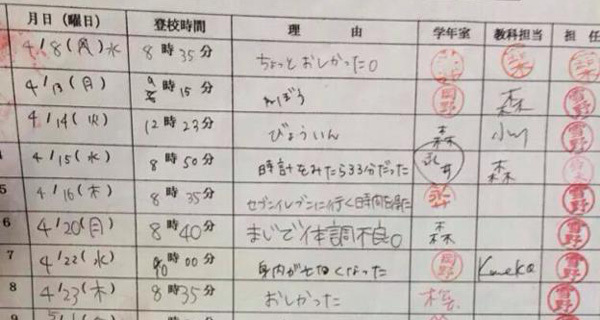 月日(曜日) 登校時間 理由 学年室 教科担当 担任
4/8(月)水 8時35分 ちょっとおしかった。
4/13(月) 9時15分 ねぼう 岡野 森 雪野
4/14(火) 12時23分 びょういん 森 小川 雪野
4/15(水) 8時50分 時計をみたら33分だった 森
5 4/16(木) 8時35分 セブンイレブンに行く時間 雪野
6 4/20(月) 8時40分 まじで体調不良。 森 雪野
7 4/22(水) 時00分 身内が亡くなった 岡野 雪野
8 4/23(木) 8時35分 おしかった 雪野